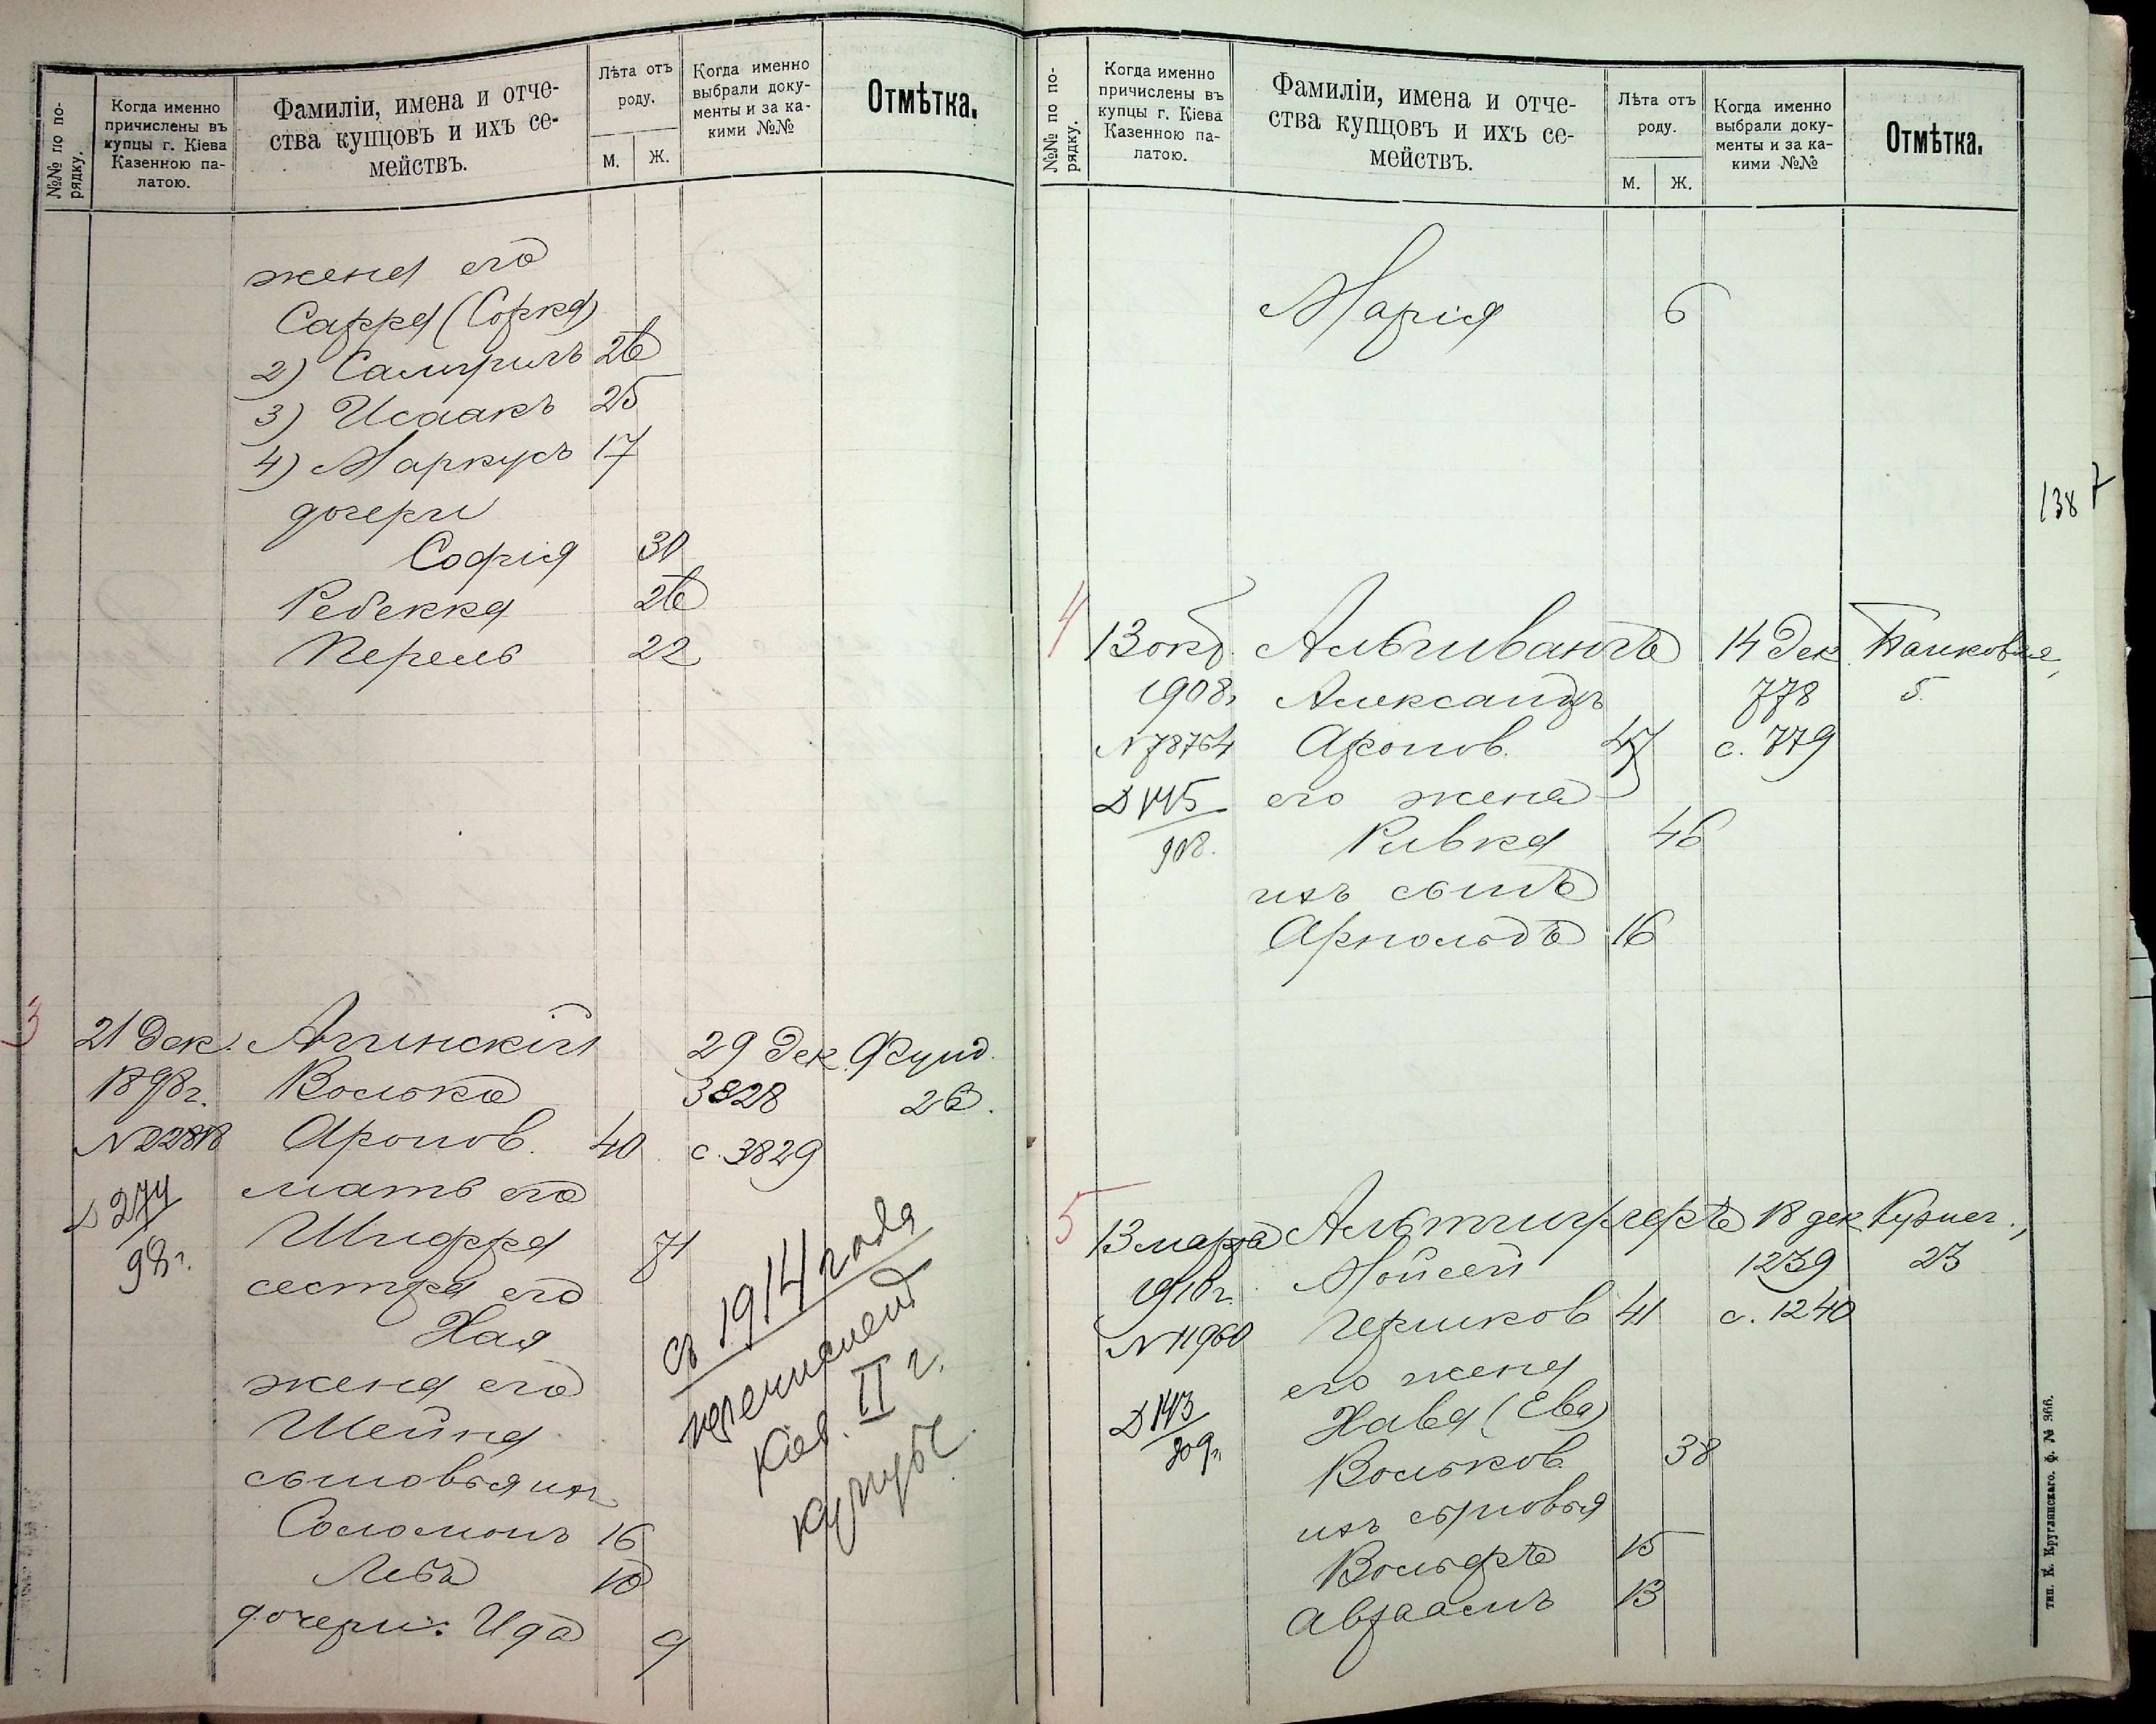 №№ по по-
рядку.
Когда именно
причислены въ
купцы г. Кіева
Казенною па-
латою.
Фамиліи, имена и отче-
ства купцовъ и ихъ се-
мействъ.
Лѣта отъ
роду.
М.
Ж.
Когда именно
выбрали доку-
менты и за ка-
кими №№
Отмѣтка.
жена его
Сарра (Сорка)
2) Самуилъ 26
3) Исаакъ 25
4) Маркусъ 17
дочери
Софія 30
Ребекка 26
Перель 22
3
21 Дек. Агинскій 29 Дек. Фунд.
1898 г. Волько 3828 26.
Аронов. 40 с. 3829
Д 274 мать его
98 г. Шифра 71
сестра его
Хая
жена его
Шейна
сыновья ихъ
Соломонъ 16
Лейба 10
дочери: Ида 9
съ 1914 года
перечисленъ
Кіев. II г.
купцы
№№ по по-
рядку.
Когда именно
причислены въ
купцы г. Кіева
Казенною па-
латою.
Фамиліи, имена и отче-
ства купцовъ и ихъ се-
мействъ.
Лѣта отъ
роду.
М.
Ж.
Когда именно
выбрали доку-
менты и за ка-
кими №№
Отмѣтка.
Марія 6
138 7
4
13 окт. Альшвангъ 14 Дек. Банковая,
1908 г. Александръ 778 5.
N 78764 Аронов. 47 с. 779
Д 145 его жена
908. Ривка 46
ихъ сынъ
Арнольдъ 16
5
13 марта Альтшулеръ 18 дек. Кузнеч.,
1910 г. Мойсей 1239 23
N 11960 Гершков 41 с. 1240
его жена
Д 143 Хава (Ева)
909 г. Вольков. 38
ихъ сыновья
Вольфъ 15
Авраамъ 13
тип. К. Круглянскаго. ф. № 366.